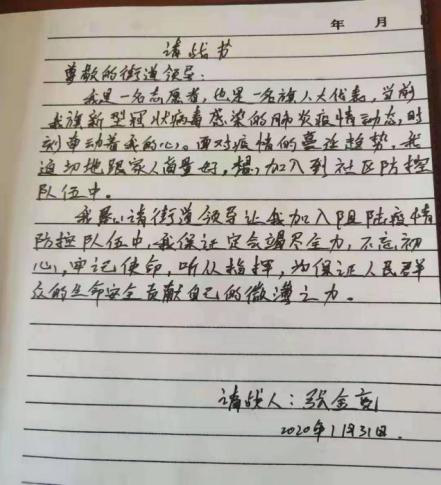 年 月
请战书
尊敬的街道领导:
我是一名志愿者,也是一名旗人大代表,当前
我旗新型冠状病毒感染的肺炎疫情动态,时
刻牵动着我的心。面对疫情的蔓延趋势,我
迫切地跟家人商量好,想加入到社区防控
队伍中。
我恳请街道领导让我加入阻陆疫情
防控队伍中,我保证定会竭尽全力,不忘初
心,牢记使命,听从指挥,为保证人民群
众的生命安全贡献自己的微薄之力。
请战人:张金
2020年1月31日.